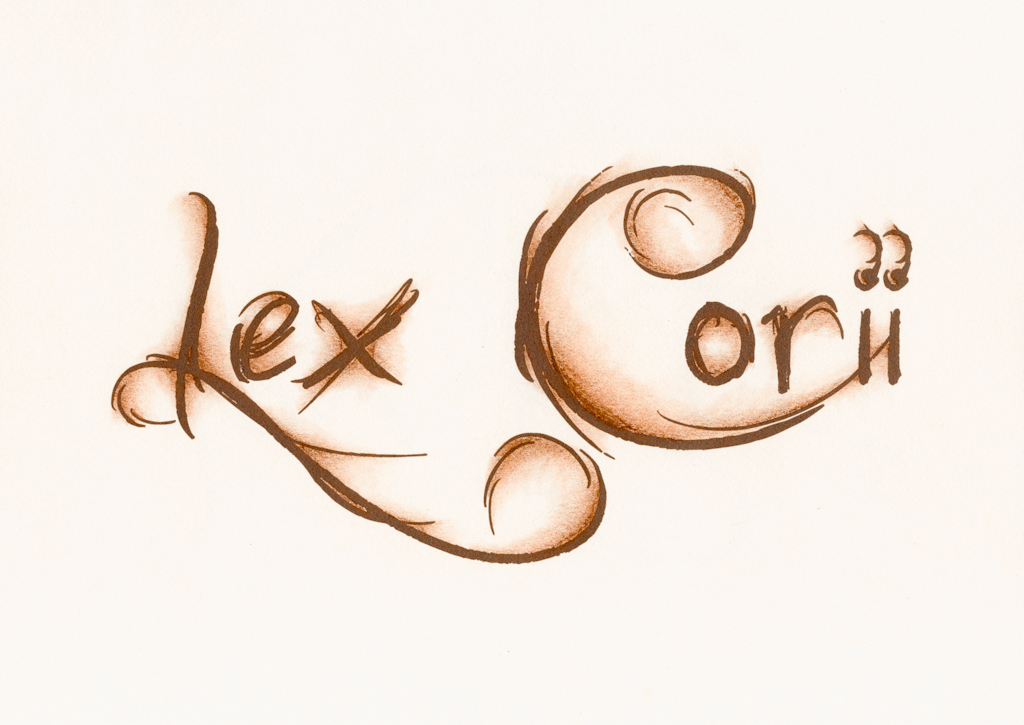 Lex Corii